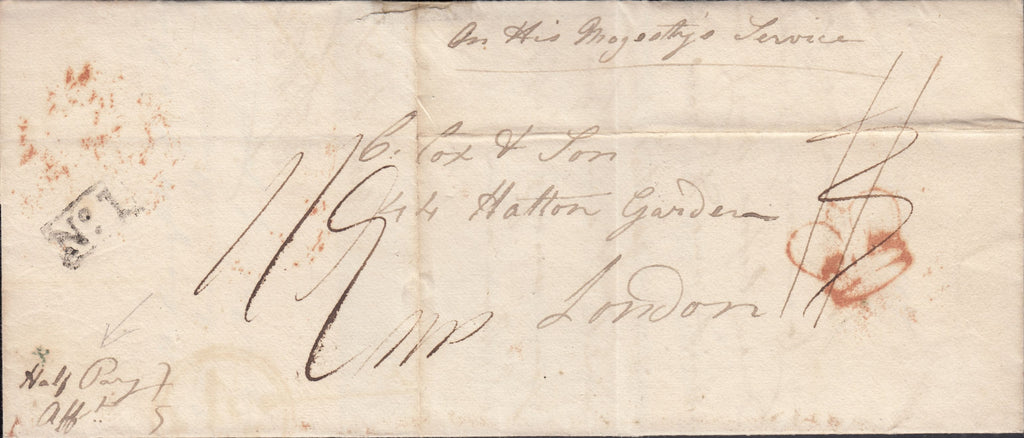 On His Majesty's Service
C. Cox & Son
44 Hatton Garden
London
No. 1
Half Pay
Afft.